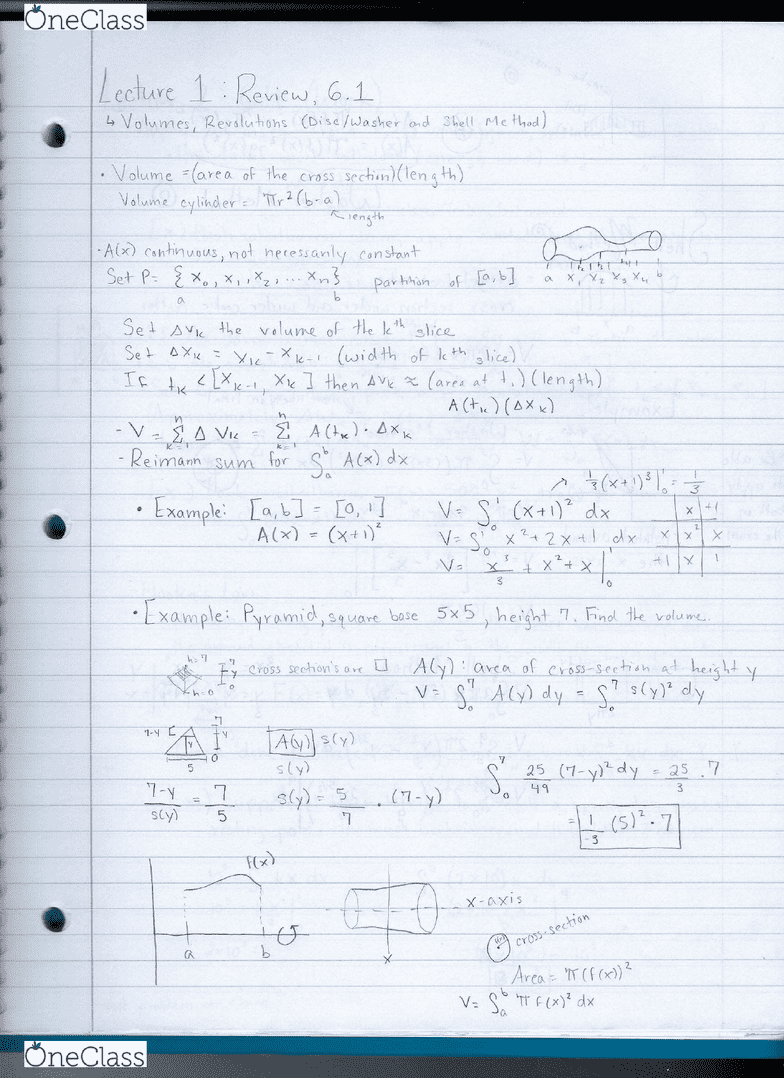 OneClass
Lecture 1: Review, 6.1
↳ Volumes, Revolutions (Disc/Washer and Shell Method)
· Volume = (area of the cross section)(length)
Volume cylinder = πr²(b-a)
↖ length
· A(x) continuous, not necessarily constant
Set P = {x₀, x₁, x₂, ... xₙ} partition of [a,b]
a b
a x₁ x₂ x₃ x₄ b
Set Δvₖ the volume of the kᵗʰ slice
Set Δxₖ = xₖ - xₖ₋₁ (width of kᵗʰ slice)
If tₖ < [xₖ₋₁, xₖ] then Δvₖ ≈ (area at t.)(length)
A(tₖ)(Δxₖ)
- V = Σⁿₖ₌₁ Δ Vₖ = Σⁿₖ₌₁ A(tₖ) · Δxₖ
- Reimann sum for ∫ₐᵇ A(x) dx
↗ 1/3 (x+1)³|₀¹ = 1/3
• Example: [a,b] = [0,1] V = ∫₀¹ (x+1)² dx
A(x) = (x+1)² V = ∫₀¹ x² + 2x + 1 dx
V = x³/3 + x² + x |₀¹
x +1
x x² x
+1 x 1
• Example: Pyramid, square base 5x5, height 7. Find the volume.
h=7 7 y 0 cross section's are □ A(y): area of cross-section at height y
h=0 V = ∫₀⁷ A(y) dy = ∫₀⁷ s(y)² dy
7-y y 7 y 0 A(y) s(y)
5 s(y)
∫₀⁷ 25/49 (7-y)² dy = 25/3 · 7
7-y/s(y) = 7/5 s(y) = 5/7 · (7-y)
= 1/3 (5)² · 7
f(x)
x-axis
a b x
cross-section
Area = π(f(x))²
V = ∫ₐᵇ π f(x)² dx
OneClass